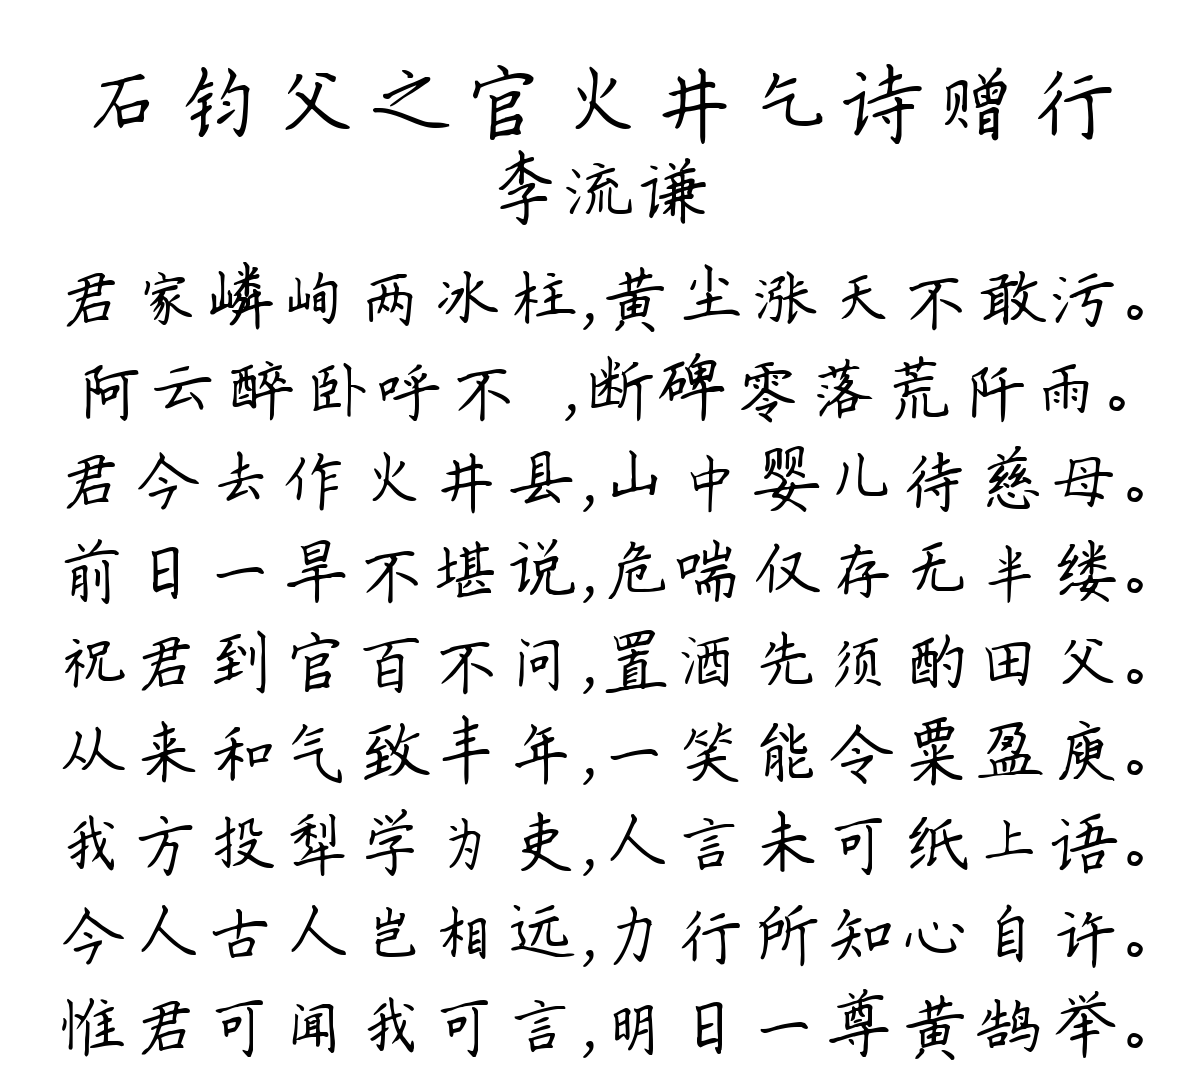 石钧父之官火井乞诗赠行
李流谦
君家嶙峋两冰柱,黄尘涨天不敢污。
阿云醉卧呼不 ,断碑零落荒阡雨。
君今去作火井县,山中婴儿待慈母。
前日一旱不堪说,危喘仅存无半缕。
祝君到官百不问,置酒先须酌田父。
从来和气致丰年,一笑能令粟盈庾。
我方投犁学为吏,人言未可纸上语。
今人古人岂相远,力行所知心自许。
惟君可闻我可言,明日一尊黄鹄举。